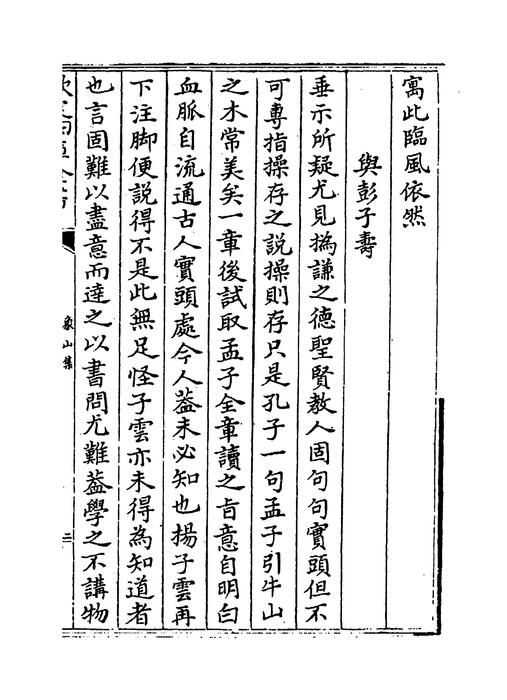 寓此臨風依然
與彭子壽
垂示所疑尤見撝謙之德聖賢教人固句句實頭但不
可專指操存之說操則存只是孔子一句孟子引牛山
之木常美矣一章後試取孟子全章讀之旨意自明白
血脈自流通古人實頭處今人葢未必知也揚子雲再
下注脚便說得不是此無足怪子雲亦未得為知道者
也言固難以盡意而達之以書問尤難葢學之不講物
象山集